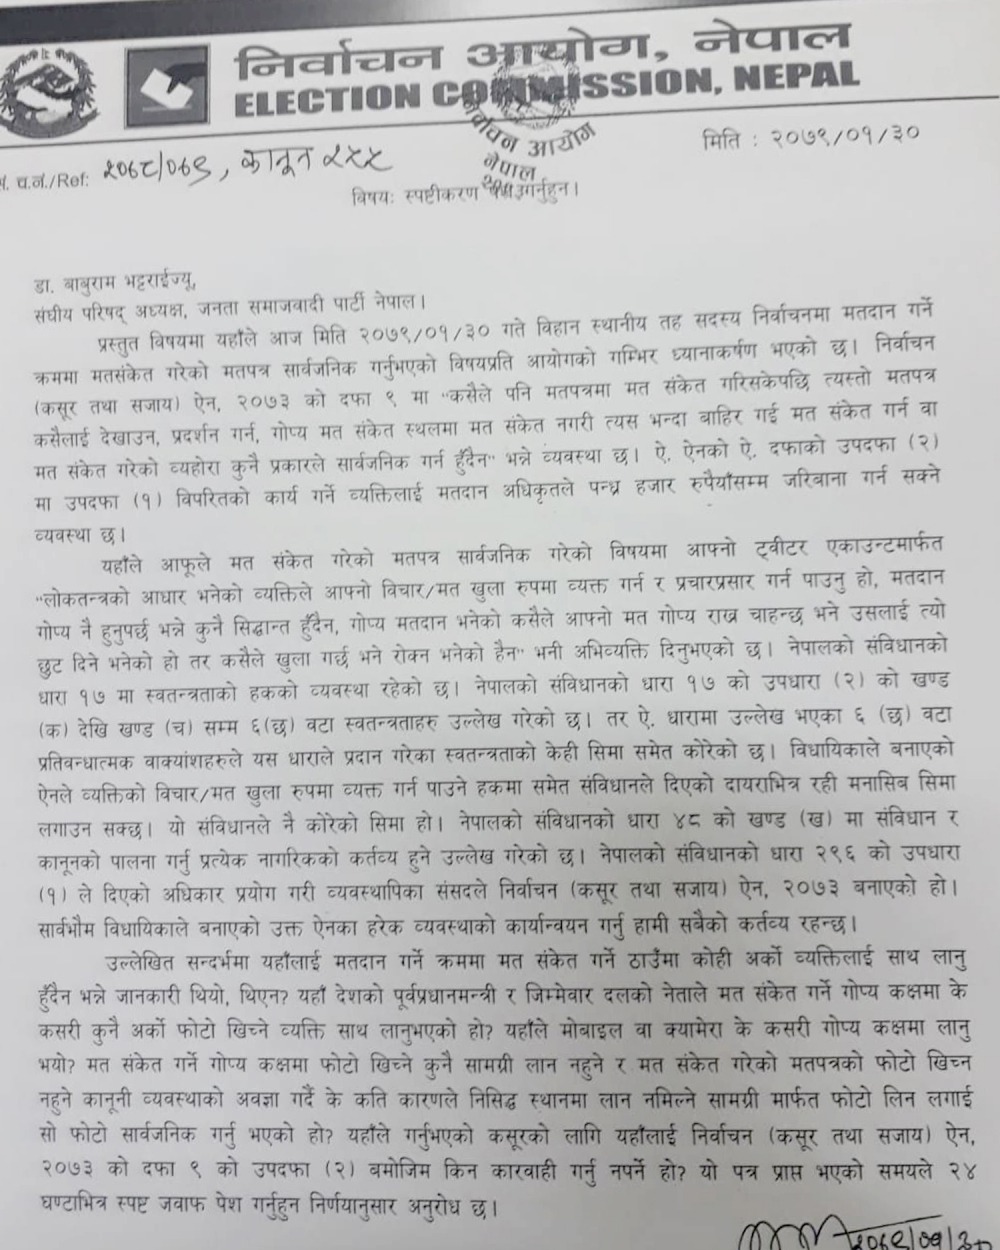 निर्वाचन आयोग, नेपाल
ELECTION COMMISSION, NEPAL
निर्वाचन आयोग
नेपाल
मिति : २०७९/०१/३०
च.नं./Ref: २०७८/०७९, कानून २५५
विषयः स्पष्टीकरण गर्नुहुन।
डा. बाबुराम भट्टराईज्यू,
संघीय परिषद् अध्यक्ष, जनता समाजवादी पार्टी नेपाल।
प्रस्तुत विषयमा यहाँले आज मिति २०७९/०१/३० गते विहान स्थानीय तह सदस्य निर्वाचनमा मतदान गर्ने
क्रममा मतसंकेत गरेको मतपत्र सार्वजनिक गर्नुभएको विषयप्रति आयोगको गम्भिर ध्यानाकर्षण भएको छ। निर्वाचन
(कसूर तथा सजाय) ऐन, २०७३ को दफा ९ मा "कसैले पनि मतपत्रमा मत संकेत गरिसकेपछि त्यस्तो मतपत्र
कसैलाई देखाउन, प्रदर्शन गर्न, गोप्य मत संकेत स्थलमा मत संकेत नगरी त्यस भन्दा बाहिर गई मत संकेत गर्न वा
मत संकेत गरेको व्यहोरा कुनै प्रकारले सार्वजनिक गर्न हुँदैन" भन्ने व्यवस्था छ। ऐ. ऐनको ऐ. दफाको उपदफा (२)
मा उपदफा (१) विपरितको कार्य गर्ने व्यक्तिलाई मतदान अधिकृतले पन्ध्र हजार रुपैयाँसम्म जरिबाना गर्न सक्ने
व्यवस्था छ।
यहाँले आफूले मत संकेत गरेको मतपत्र सार्वजनिक गरेको विषयमा आफ्नो ट्वीटर एकाउन्टमार्फत
"लोकतन्त्रको आधार भनेको व्यक्तिले आफ्नो विचार/मत खुला रुपमा व्यक्त गर्न र प्रचारप्रसार गर्न पाउनु हो, मतदान
गोप्य नै हुनुपर्छ भन्ने कुनै सिद्धान्त हुँदैन, गोप्य मतदान भनेको कसैले आफ्नो मत गोप्य राख्न चाहन्छ भने उसलाई त्यो
छुट दिने भनेको हो तर कसैले खुला गर्छ भने रोक्न भनेको हैन" भनी अभिव्यक्ति दिनुभएको छ। नेपालको संविधानको
धारा १७ मा स्वतन्त्रताको हकको व्यवस्था रहेको छ। नेपालको संविधानको धारा १७ को उपधारा (२) को खण्ड
(क) देखि खण्ड (च) सम्म ६(छ) वटा स्वतन्त्रताहरु उल्लेख गरेको छ। तर ऐ. धारामा उल्लेख भएका ६ (छ) वटा
प्रतिवन्धात्मक वाक्यांशहरुले यस धाराले प्रदान गरेका स्वतन्त्रताको केही सिमा समेत कोरेको छ। विधायिकाले बनाएको
ऐनले व्यक्तिको विचार/मत खुला रुपमा व्यक्त गर्न पाउने हकमा समेत संविधानले दिएको दायराभित्र रही मनासिब सिमा
लगाउन सक्छ। यो संविधानले नै कोरेको सिमा हो। नेपालको संविधानको धारा ४८ को खण्ड (ख) मा संविधान र
कानूनको पालना गर्नु प्रत्येक नागरिकको कर्तव्य हुने उल्लेख गरेको छ। नेपालको संविधानको धारा २९६ को उपधारा
(१) ले दिएको अधिकार प्रयोग गरी व्यवस्थापिका संसदले निर्वाचन (कसूर तथा सजाय) ऐन, २०७३ बनाएको हो।
सार्वभौम विधायिकाले बनाएको उक्त ऐनका हरेक व्यवस्थाको कार्यान्वयन गर्नु हामी सबैको कर्तव्य रहन्छ।
उल्लेखित सन्दर्भमा यहाँलाई मतदान गर्ने क्रममा मत संकेत गर्ने ठाउँमा कोही अर्को व्यक्तिलाई साथ लानु
हुँदैन भन्ने जानकारी थियो, थिएन? यहाँ देशको पूर्वप्रधानमन्त्री र जिम्मेवार दलको नेताले मत संकेत गर्ने गोप्य कक्षमा के
कसरी कुनै अर्को फोटो खिच्ने व्यक्ति साथ लानुभएको हो? यहाँले मोबाइल वा क्यामेरा के कसरी गोप्य कक्षमा लानु
भयो? मत संकेत गर्ने गोप्य कक्षमा फोटो खिच्ने कुनै सामग्री लान नहुने र मत संकेत गरेको मतपत्रको फोटो खिच्न
नहुने कानूनी व्यवस्थाको अवज्ञा गर्दै के कति कारणले निसिद्ध स्थानमा लान नमिल्ने सामग्री मार्फत फोटो लिन लगाई
सो फोटो सार्वजनिक गर्नु भएको हो? यहाँले गर्नुभएको कसूरको लागि यहाँलाई निर्वाचन (कसूर तथा सजाय) ऐन,
२०७३ को दफा ९ को उपदफा (२) बमोजिम किन कारवाही गर्नु नपर्ने हो? यो पत्र प्राप्त भएको समयले २४
घण्टाभित्र स्पष्ट जवाफ पेश गर्नुहुन निर्णयानुसार अनुरोध छ।
२०७९/०१/३०